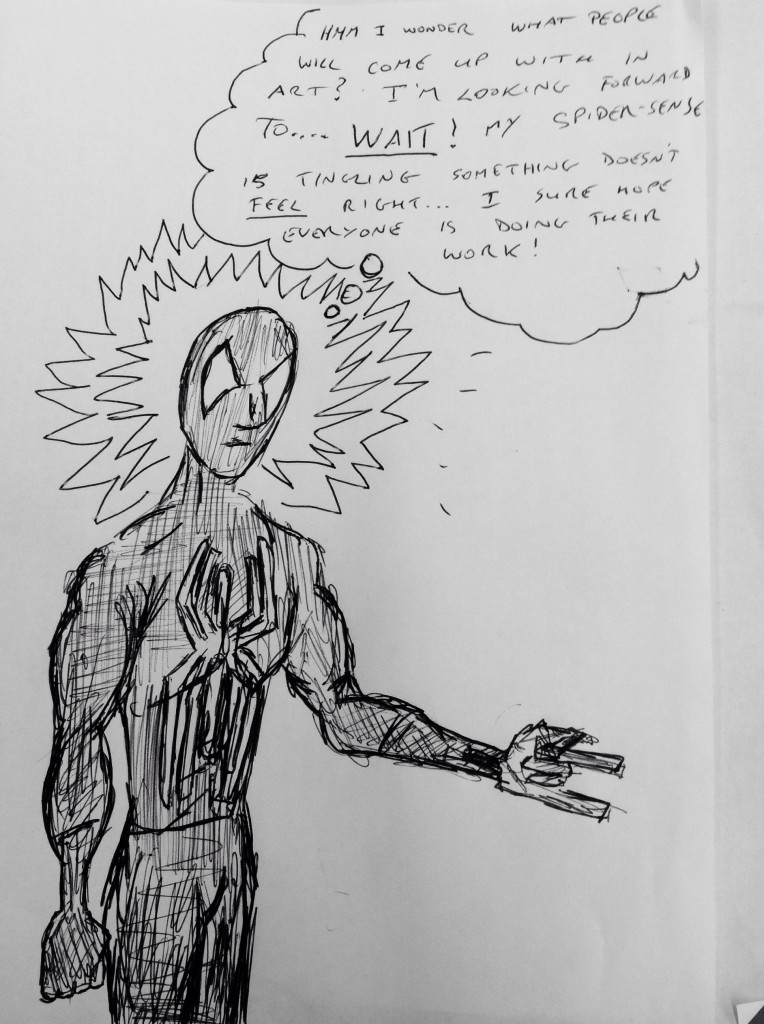 HMM I WONDER WHAT PEOPLE
WILL COME UP WITH IN
ART? I'M LOOKING FORWARD
TO.... WAIT! MY SPIDER-SENSE
IS TINGLING SOMETHING DOESN'T
FEEL RIGHT... I SURE HOPE
EVERYONE IS DOING THEIR
WORK!